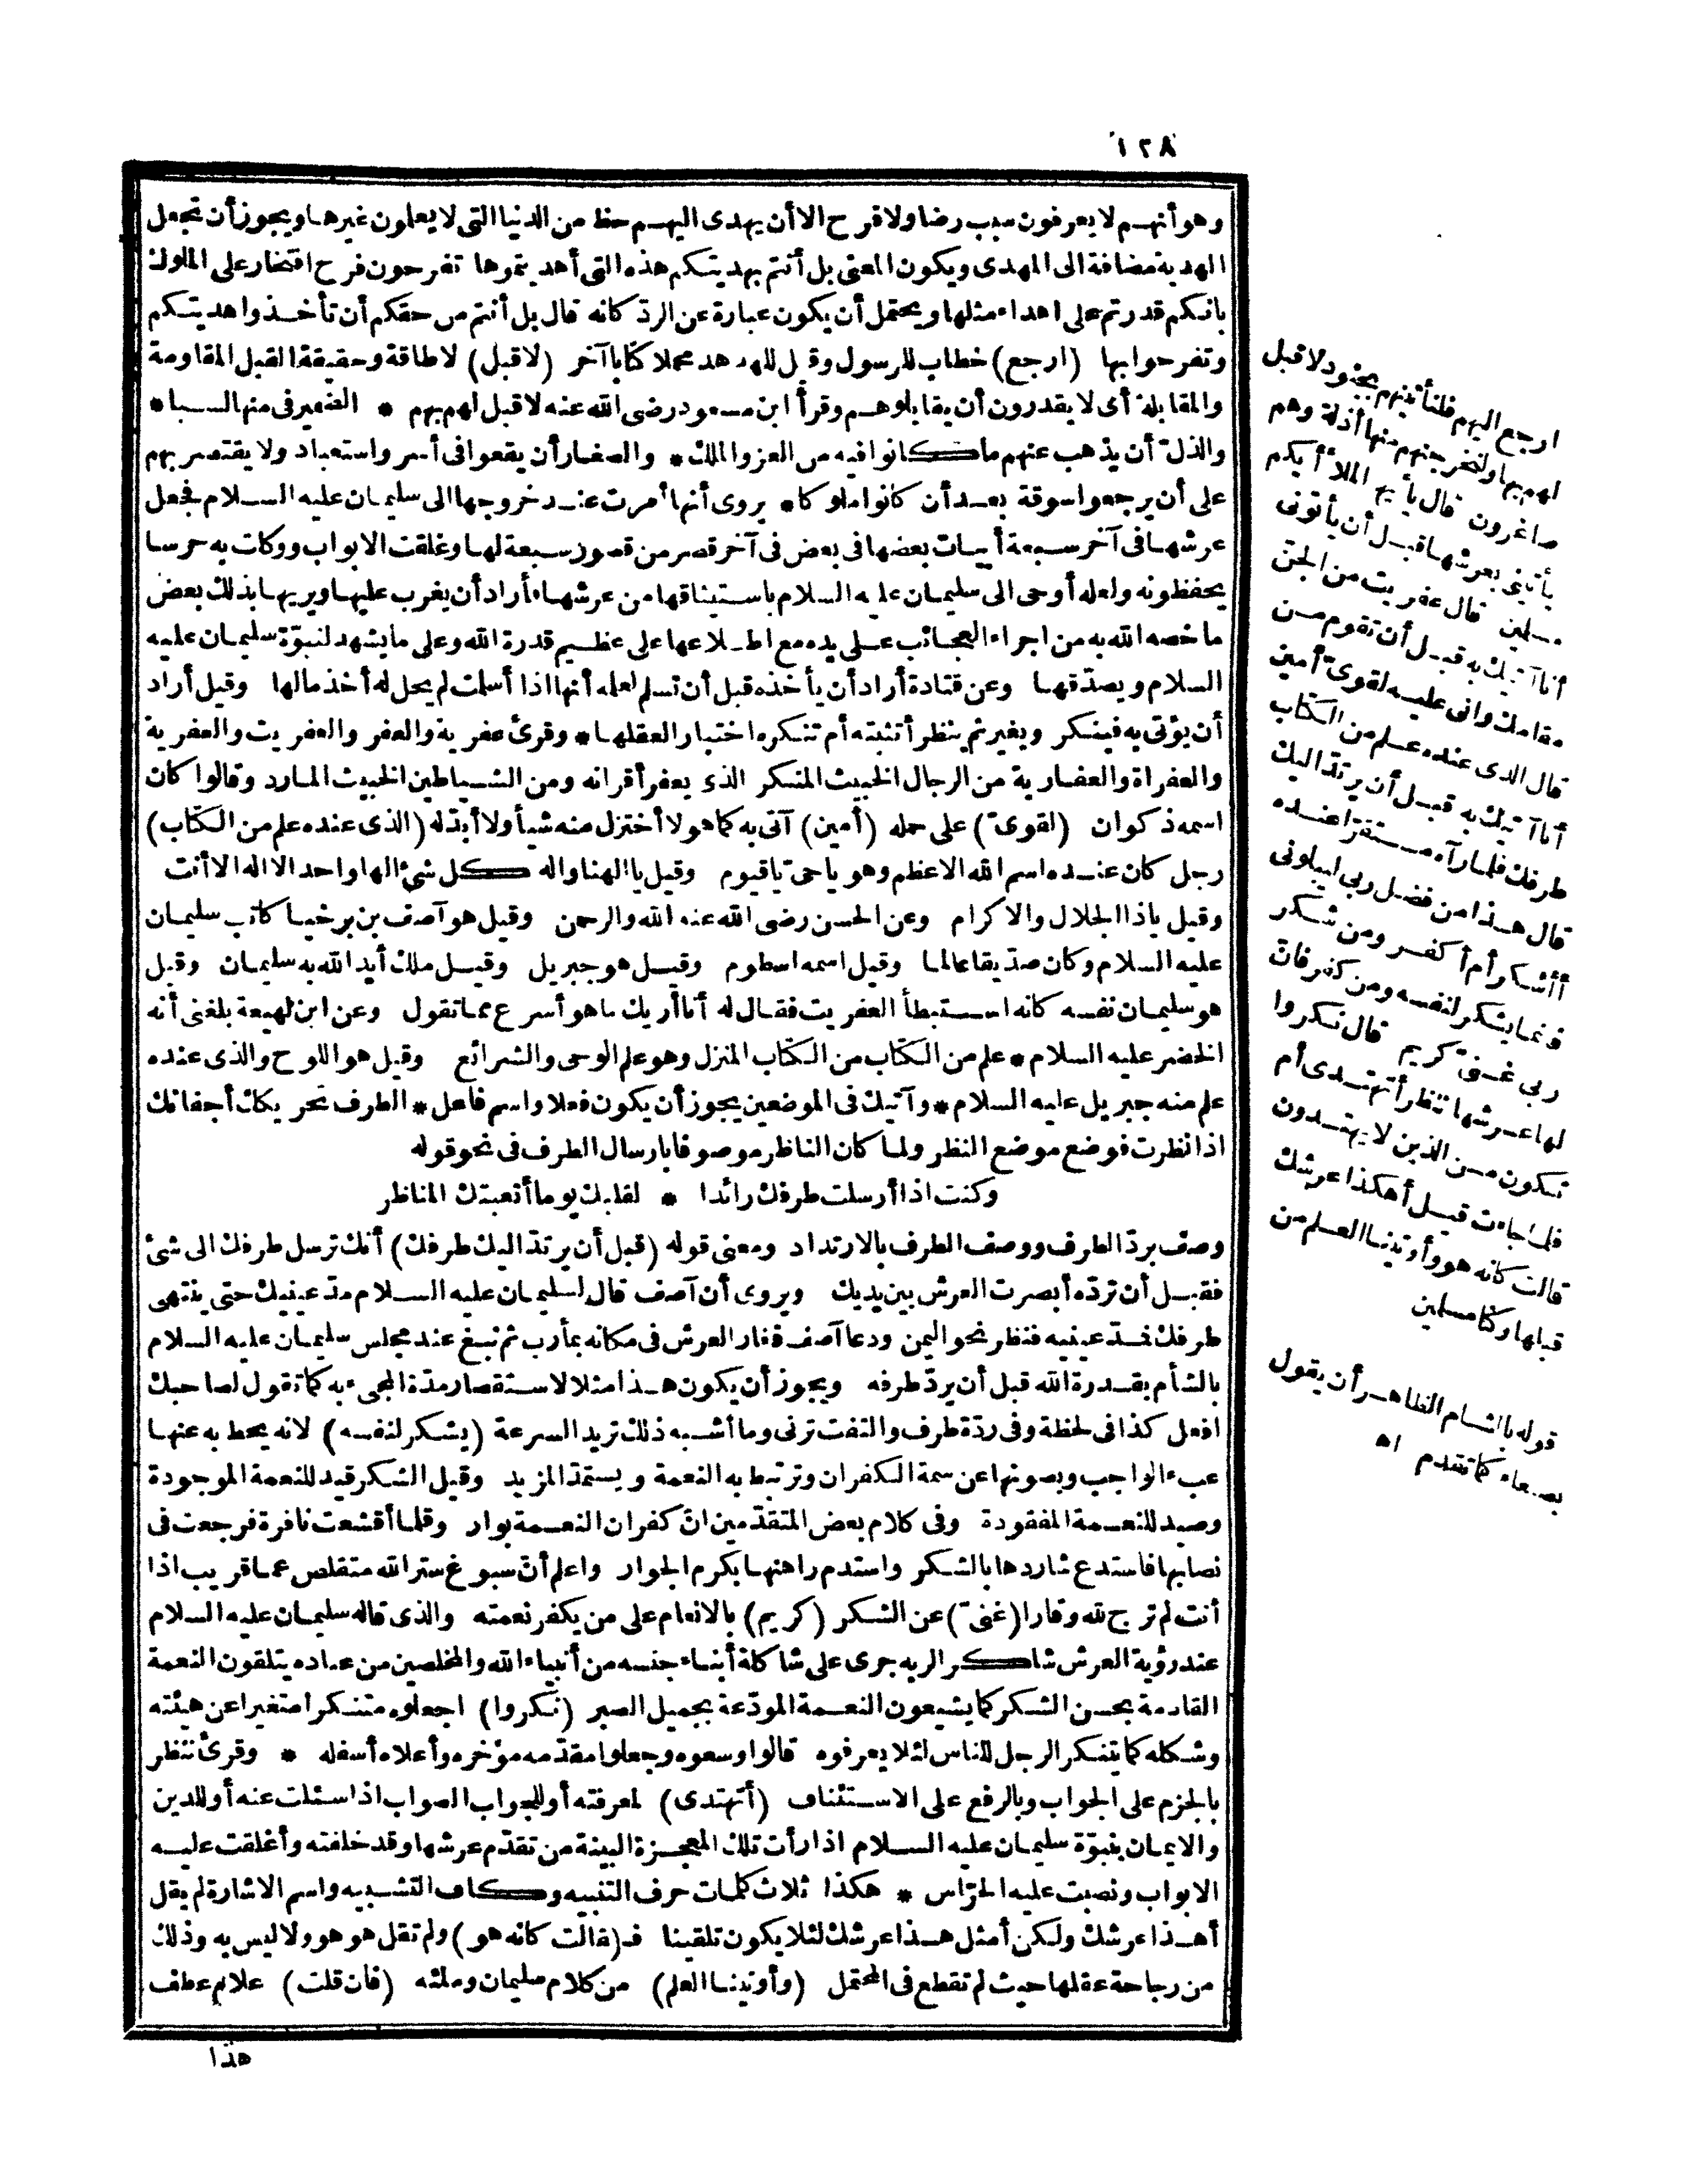 ١٢٨
وهو أنهم لا يعرفون سبب رضا ولا فرح الا أن يهدى اليهم حظ من الدنيا التى لا يعلمون غيرها ويجوز أن تجعل
الهدية مضافة الى المهدى ويكون المعنى بل أنتم بهديتكم هذه التى أهديتموها تفرحون فرح افتخار على الملوك
بانكم قدرتم على اهداء مثلها ويحتمل أن يكون عبارة عن الردّ كانه قال بل أنتم من حقكم أن تأخذوا هديتكم
وتفرحوا بها (ارجع) خطاب للرسول وقيل للهدهد محملا كتابا آخر (لا قبل) لا طاقة وحقيقة القبل المقاومة
والمقابلة أى لا يقدرون أن يقابلوهم وقرأ ابن مسعود رضى الله عنه لا قبل لهم بهم * الضمير فى منها لسبا *
والذلّ أن يذهب عنهم ما كانوا فيه من العز والملك * والصغار أن يقعوا فى أسر واستعباد ولا يقتصر بهم
على أن يرجعوا سوقة بعد أن كانوا ملوكا * يروى أنها أمرت عند خروجها الى سليمان عليه السلام فجعل
عرشها فى آخر سبعة أبيات بعضها فى بعض فى آخر قصر من قصور سبعة لها وغلقت الابواب ووكلت به حرسا
يحفظونه ولعله أوحى الى سليمان عليه السلام باستيثاقها من عرشها فأراد أن يغرب عليها ويريها بذلك بعض
ما خصه الله به من اجراء العجائب على يده مع اطلاعها على عظيم قدرة الله وعلى ما يشهد لنبوّة سليمان عليه
السلام ويصدّقها وعن قتادة أراد أن يأخذه قبل أن تسلم لعلمه أنها اذا أسلمت لم يحل له أخذ مالها وقيل أراد
أن يؤتى به فينكر ويغير ثم ينظر أتثبته أم تنكره اختبارا لعقلها * وقرئ عفرية والعفر والعفريت والعفرية
والعفراة والعفارية من الرجال الخبيث المنكر الذى يعفر أقرانه ومن الشياطين الخبيث المارد وقالوا كان
اسمه ذكوان (لقوىّ) على حمله (أمين) آتى به كما هو لا أختزل منه شيأ ولا أبدّله (الذى عنده علم من الكتاب)
رجل كان عنده اسم الله الاعظم وهو يا حىّ يا قيوم وقيل يا الهنا واله كل شئ الها واحدا لا اله الا أنت
وقيل يا ذا الجلال والاكرام وعن الحسن رضى الله عنه الله والرحمن وقيل هو آصف بن برخيا كاتب سليمان
عليه السلام وكان صدّيقا عالما وقيل اسمه اسطوم وقيل هو جبريل وقيل ملك أيد الله به سليمان وقيل
هو سليمان نفسه كانه استبطأ العفريت فقال له أنا أريك ما هو أسرع مما تقول وعن ابن لهيعة بلغنى أنه
الخضر عليه السلام * علم من الكتاب من الكتاب المنزل وهو علم الوحى والشرائع وقيل هو اللوح والذى عنده
علم منه جبريل عليه السلام * وآتيك فى الموضعين يجوز أن يكون فعلا واسم فاعل * الطرف تحريكك أجفانك
اذا نظرت فوضع موضع النظر ولما كان الناظر موصوفا بارسال الطرف فى نحو قوله
وكنت اذا أرسلت طرفك رائدا * لقلبك يوما أتعبتك المناظر
وصف بردّ الطرف ووصف الطرف بالارتداد ومعنى قوله (قبل أن يرتدّ اليك طرفك) أنك ترسل طرفك الى شئ
فقبل أن تردّه أبصرت العرش بين يديك ويروى أن آصف قال لسليمان عليه السلام مدّ عينيك حتى ينتهى
طرفك فمدّ عينيه فنظر نحو اليمن ودعا آصف فغار العرش فى مكانه بمأرب ثم نبع عند مجلس سليمان عليه السلام
بالشأم بقدرة الله قبل أن يردّ طرفه ويجوز أن يكون هذا مثلا لاستقصار مدّة المجىء به كما تقول لصاحبك
افعل كذا فى لحظة وفى ردّة طرف والتفت ترنى وما أشبه ذلك تريد السرعة (يشكر لنفسه) لانه يحط به عنها
عبء الواجب ويصونها عن سمة الكفران وترتبط به النعمة ويستمدّ المزيد وقيل الشكر قيد للنعمة الموجودة
وصيد للنعمة المفقودة وفى كلام بعض المتقدّمين انّ كفران النعمة بوار وقلما أقشعت نافرة فرجعت فى
نصابها فاستدع شاردها بالشكر واستدم راهنها بكرم الجوار واعلم أنّ سبوغ ستر الله متقلص عما قريب اذا
أنت لم ترج لله وقارا (غنىّ) عن الشكر (كريم) بالانعام على من يكفر نعمته والذى قاله سليمان عليه السلام
عند رؤية العرش شاكرا لربه جرى على شاكلة أبناء جنسه من أنبياء الله والمخلصين من عباده يتلقون النعمة
القادمة بحسن الشكر كما يشيعون النعمة المودّعة بجميل الصبر (نكروا) اجعلوه متنكرا متغيرا عن هيئته
وشكله كما يتنكر الرجل للناس لئلا يعرفوه قالوا وسعوه وجعلوا مقدّمه مؤخره وأعلاه أسفله * وقرئ ننظر
بالجزم على الجواب وبالرفع على الاستئناف (أتهتدى) لمعرفته أو للجواب الصواب اذا سئلت عنه أو للدين
والايمان بنبوّة سليمان عليه السلام اذا رأت تلك المعجزة البينة من تقدّم عرشها وقد خلفته وأغلقت عليه
الابواب ونصبت عليه الحرّاس * هكذا ثلاث كلمات حرف التنبيه وكاف التشبيه واسم الاشارة لم يقل
أهذا عرشك ولكن أمثل هذا عرشك لئلا يكون تلقينا فـ(قالت كانه هو) ولم تقل هو هو ولا ليس به وذلك
من رجاحة عقلها حيث لم تقطع فى المحتمل (وأوتينا العلم) من كلام سليمان وملئه (فان قلت) علام عطف
هذا
ارجع اليهم فلنأتينهم بجنود لا قبل
لهم بها ولنخرجنهم منها أذلة وهم
صاغرون قال يأيها الملأ أيكم
يأتينى بعرشها قبل أن يأتونى
مسلمين قال عفريت من الجنّ
أنا آتيك به قبل أن تقوم من
مقامك وانى عليه لقوىّ أمين
قال الذى عنده علم من الكتاب
أنا آتيك به قبل أن يرتدّ اليك
طرفك فلما رآه مستقرّا عنده
قال هذا من فضل ربى ليبلونى
أأشكر أم أكفر ومن شكر
فانما يشكر لنفسه ومن كفر فانّ
ربى غنىّ كريم قال نكروا
لها عرشها ننظر أتهتدى أم
تكون من الذين لا يهتدون
فلما جاءت قيل أهكذا عرشك
قالت كانه هو وأوتينا العلم من
قبلها وكنا مسلمين
قوله بالشام الظاهر أن يقول
بصنعاء كما تقدم اه